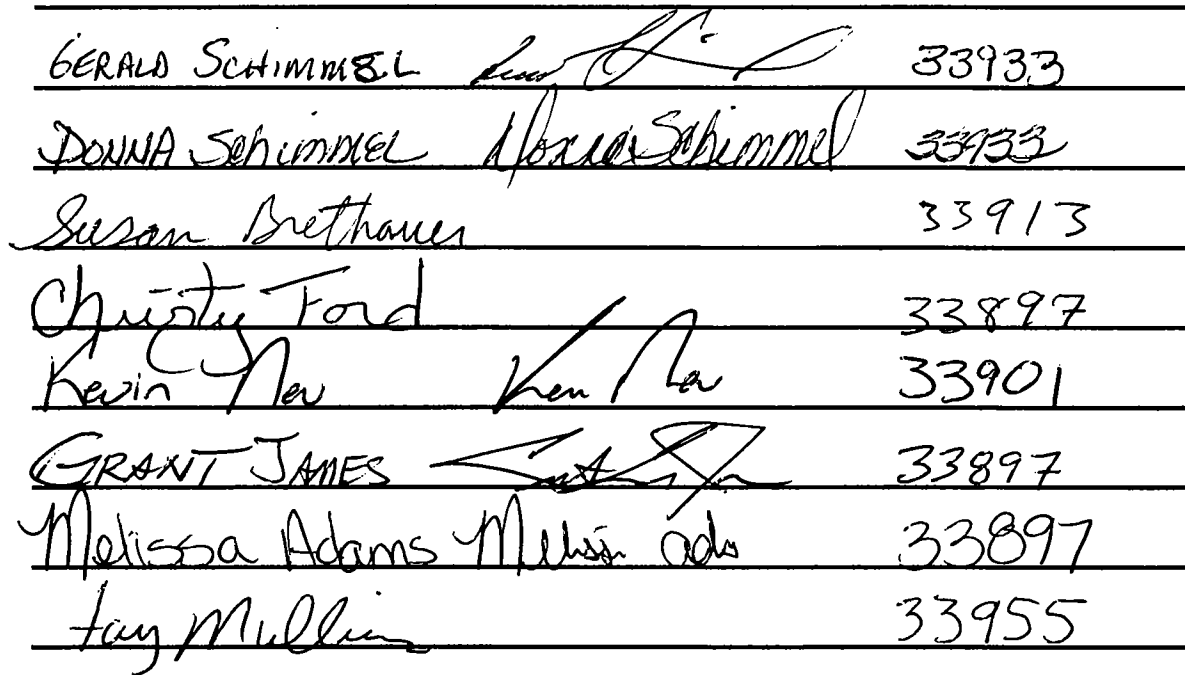 GERALD SCHIMMEL 33933
DONNA SCHIMMEL Donna Schimmel 33933
Susan Brethauer 33913
Christy Ford 33897
Kevin Nev Kevin Nev 33901
GRANT JAMES 33897
Melissa Adams Melissa Ada 33897
Fay Mullins 33955